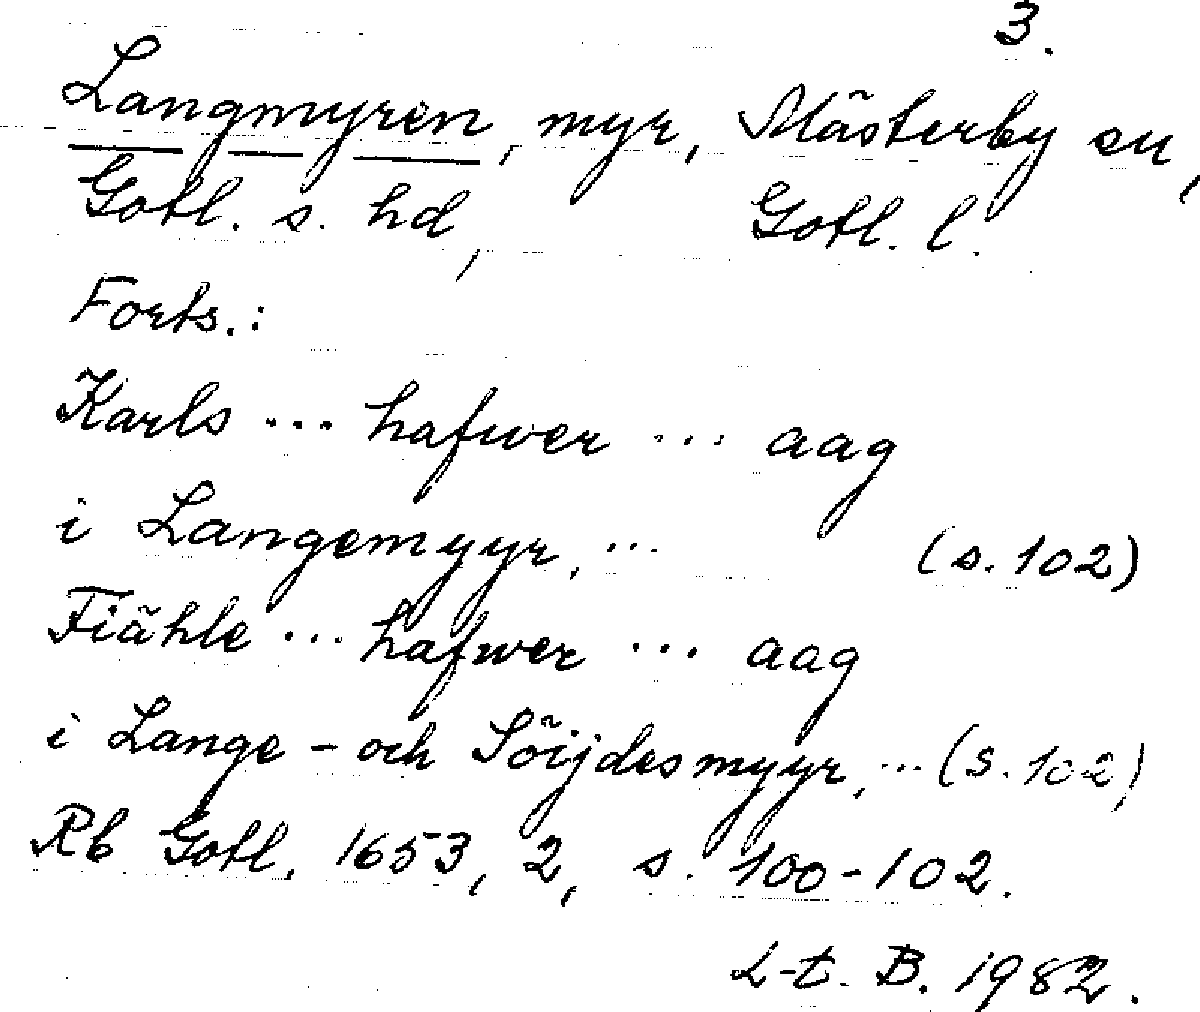 3.
Langmyren, myr, Mästerby sn,
Gotl. s. hd, Gotl. l.
Forts.:
Karls ... hafwer ... aag
i Langemyyr, ... (s. 102)
Fiähle ... hafwer ... aag
i Lange- och Söijdesmyyr, ... (s. 102)
Rb Gotl. 1653, 2, s. 100-102.
L-t. B. 1982.